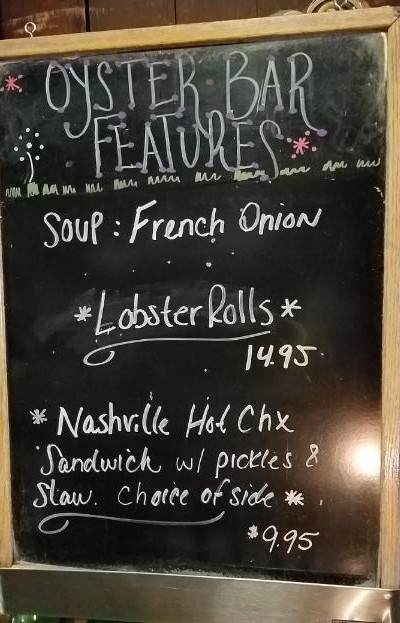 OYSTER BAR
FEATURES
SOUP: French Onion
*Lobster Rolls*
14.95
* Nashville Hot Chx
Sandwich w/ pickles &
Slaw. Choice of side *
*9.95